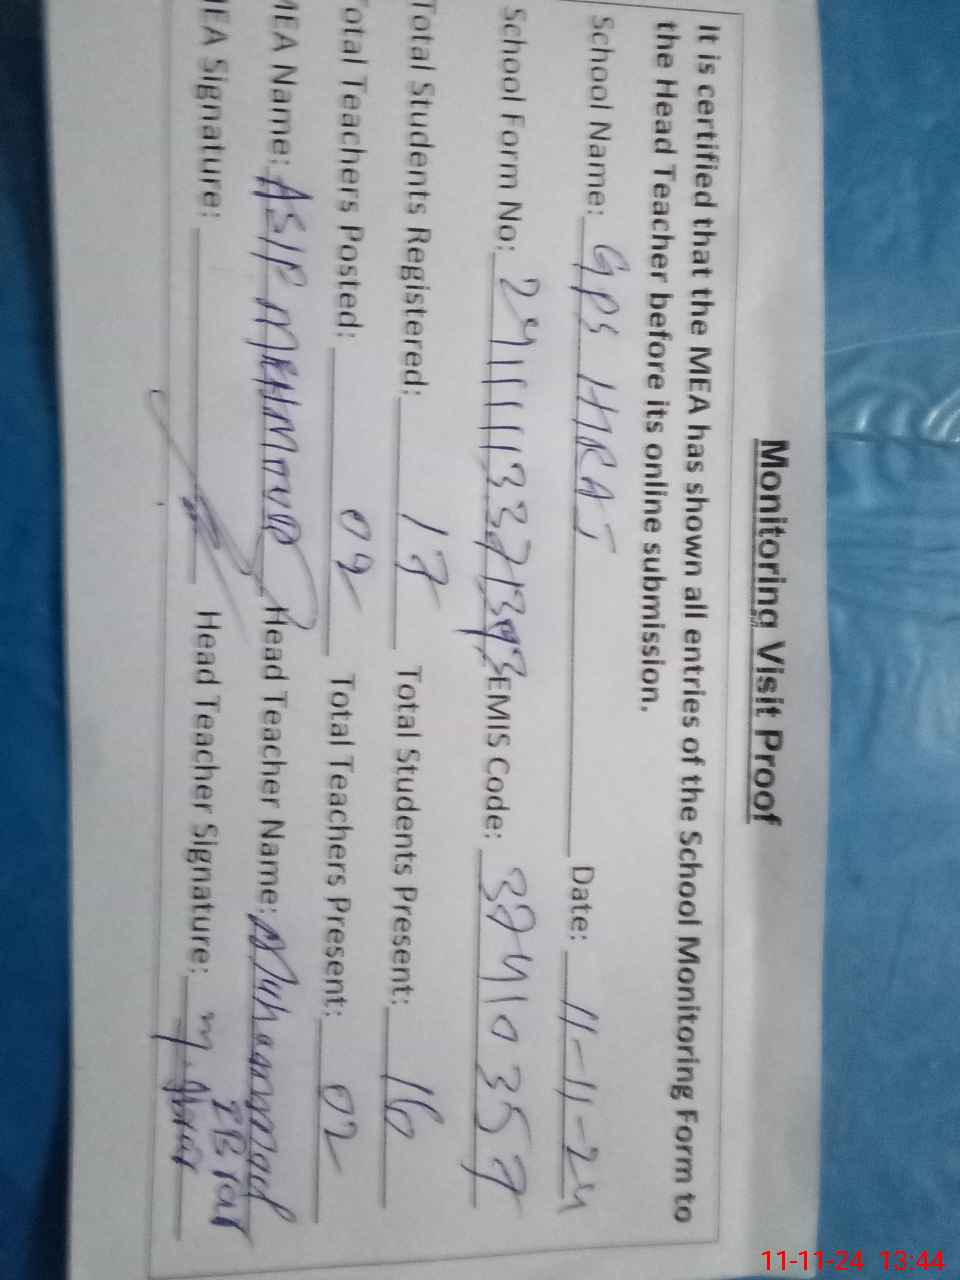 Monitoring Visit Proof
It is certified that the MEA has shown all entries of the School Monitoring Form to
the Head Teacher before its online submission.
School Name: GPS Date: 11-11-24
School Form No: EMIS Code:
Total Students Registered: 17 Total Students Present: 16
Total Teachers Posted: 02 Total Teachers Present: 02
MEA Name: ASIF MEHMOOD Head Teacher Name: Muhammad
IBrar
MEA Signature: Head Teacher Signature: M. Abrar
11-11-24 13:44